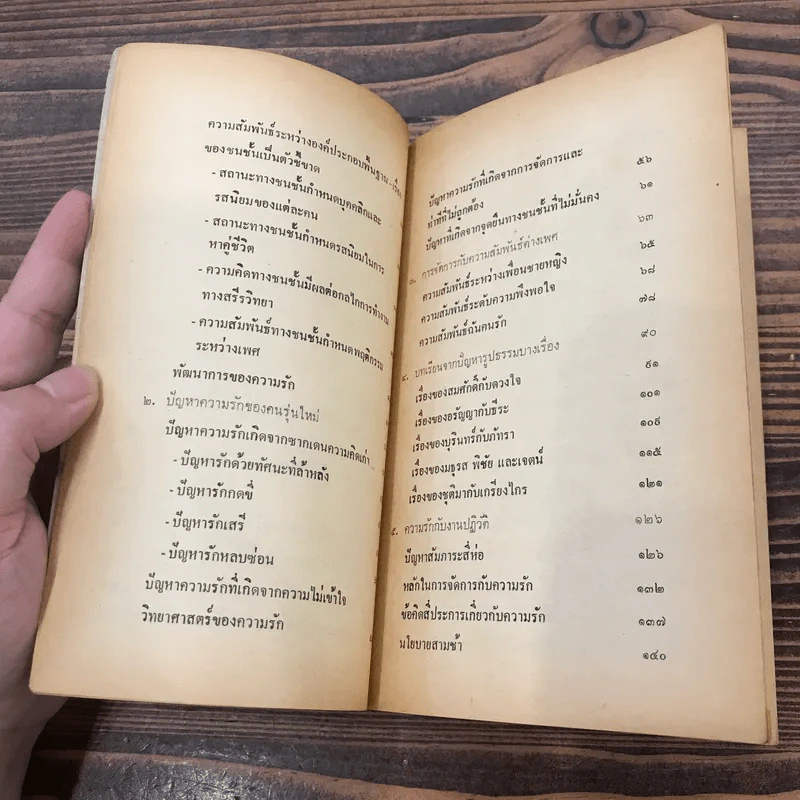 ความสัมพันธ์ระหว่างองค์ประกอบพื้นฐาน - เรื่อง
ของชนชั้นเป็นตัวชี้ขาด
- สถานะทางชนชั้นกำหนดบุคคลิกและ
รสนิยมของแต่ละคน
- สถานะทางชนชั้นกำหนดรสนิยมในการ
หาคู่ชีวิต
- ความคิดทางชนชั้นมีผลต่อกลไกการทำงาน
ทางสรีรวิทยา
- ความสัมพันธ์ทางชนชั้นกำหนดพฤติกรรม
ระหว่างเพศ
พัฒนาการของความรัก
๒. ปัญหาความรักของคนรุ่นใหม่
ปัญหาความรักเกิดจากซากเดนความคิดเก่า
- ปัญหารักด้วยทัศนะที่ล้าหลัง
- ปัญหารักกดขี่
- ปัญหารักเสรี
- ปัญหารักหลบซ่อน
ปัญหาความรักที่เกิดจากความไม่เข้าใจ
วิทยาศาสตร์ของความรัก
ปัญหาความรักที่เกิดจากการจัดการและ
ท่าทีที่ไม่ถูกต้อง ๕๖
ปัญหาที่เกิดจากจุดยืนทางชนชั้นที่ไม่มั่นคง ๖๑
๓. การจัดการกับความสัมพันธ์ต่างเพศ ๖๓
ความสัมพันธ์ระหว่างเพื่อนชายหญิง ๖๕
ความสัมพันธ์ระดับความพึงพอใจ ๖๘
ความสัมพันธ์ฉันคนรัก ๗๘
๔. บทเรียนจากปัญหารูปธรรมบางเรื่อง ๙๐
เรื่องของสมศักดิ์กับดวงใจ ๙๑
เรื่องของอรัญญากับธีระ ๑๐๑
เรื่องของบุรินทร์กับภัทรา ๑๐๙
เรื่องของมธุรส พิชัย และเจตน์ ๑๑๕
เรื่องของชุติมากับเกรียงไกร ๑๒๑
๕. ความรักกับงานปฏิวัติ ๑๒๖
ปัญหาสัมภาระสี่ห่อ ๑๒๖
หลักในการจัดการกับความรัก ๑๓๒
ข้อคิดสี่ประการเกี่ยวกับความรัก ๑๓๗
นโยบายสามช้า ๑๔๐